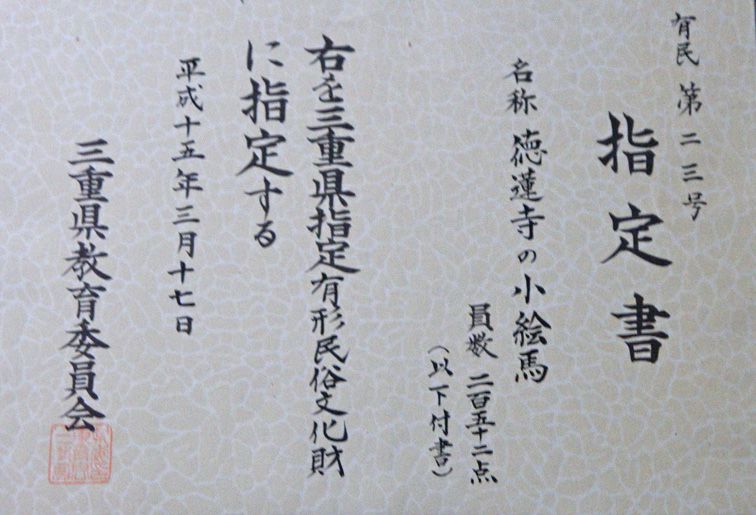 有民 第二三号
指定書
名称 徳蓮寺の小絵馬
員数 二百五十二点
(以下付書)
右を三重県指定有形民俗文化財
に指定する
平成十五年三月十七日
三重県教育委員会